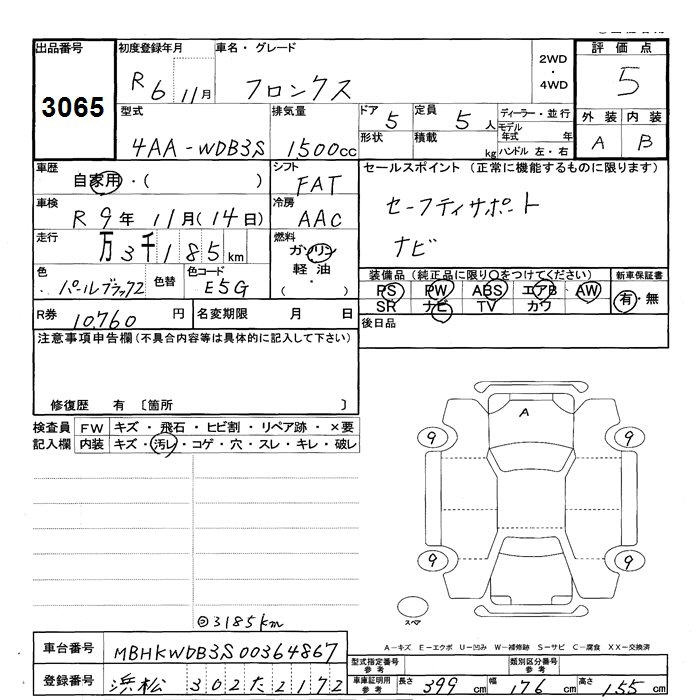 出品番号 初度登録年月 車名・グレード 2WD・4WD 評価点
3065 R 6 11月 フロンクス 5
型式 排気量 ドア 5 定員 5人 ディーラー・並行 外装 内装
4AA-WDB3S 1500cc 形状 積載 kg モデル年式 年 A B
ハンドル 左・右
車歴 シフト セールスポイント (正常に機能するものに限ります)
自家用・( ) FAT
車検 冷房 セーフティサポート
R 9年 11月(14日) AAC ナビ
走行 燃料
万3千185km ガソリン
色 色替 色コード 軽油 装備品(純正品に限り○をつけてください) 新車保証書
パールブラック2 E5G ( ・ ) PS PW ABS エアB AW 有・無
SR ナビ TV カワ
R券 10,760 円 名変期限 月 日 後日品
注意事項申告欄(不具合内容等は具体的に記入して下さい)
修復歴 有 〔箇所 〕
検査員 FW キズ・飛石・ヒビ割・リペア跡・×要
記入欄 内装 キズ・汚レ・コゲ・穴・スレ・キレ・破レ
A
9 9
9 9
スペア
3185km
A-キズ E-エクボ U-凹み W-補修跡 S-サビ C-腐食 XX-交換済
車台番号 MBHKWDB3S00364867 型式指定番号参考 類別区分番号参考
登録番号 浜松 302た2172 車庫証明用参考 長さ 399cm 幅 176cm 高さ 155cm